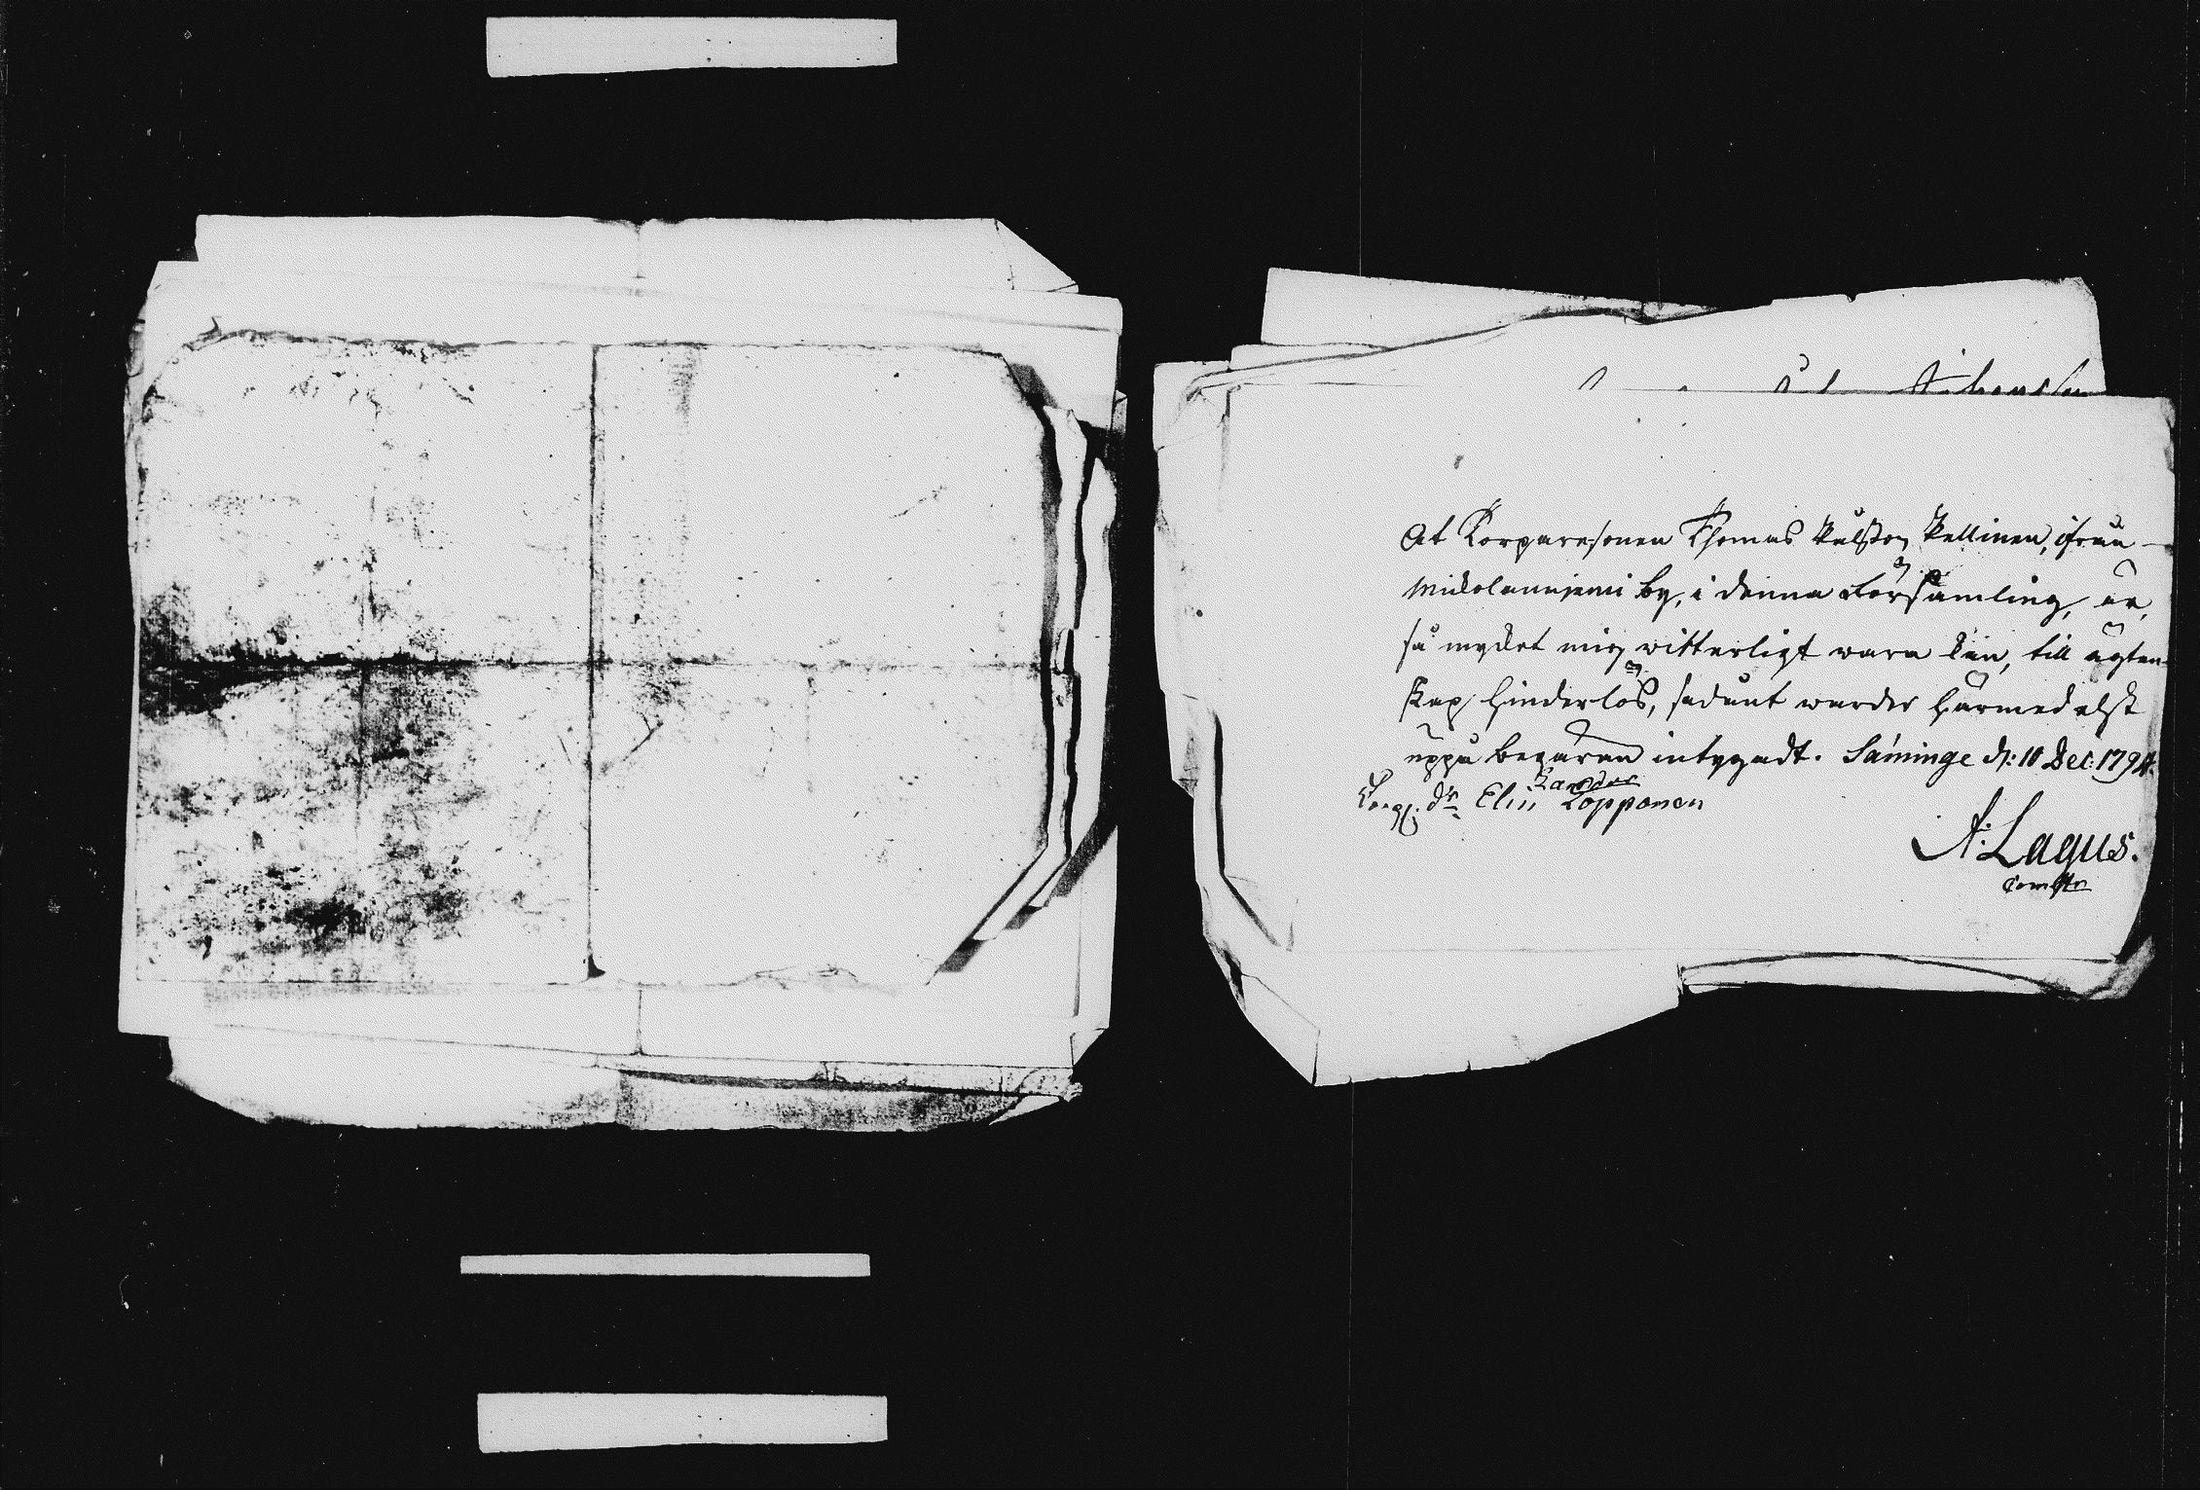 At Torparesonen Thomas Pålsson Pellinen, ifrån
Mikolanniemi by, i denna Församling, är,
så mycket mig witterligt vara kan, till ägten-
skap hinderlös, sådant warder härmedelst
uppå begäran intygadt. Säminge d: 10 Dec: 1794.
Torp: dr Elin Lopponen
A: Lagus.